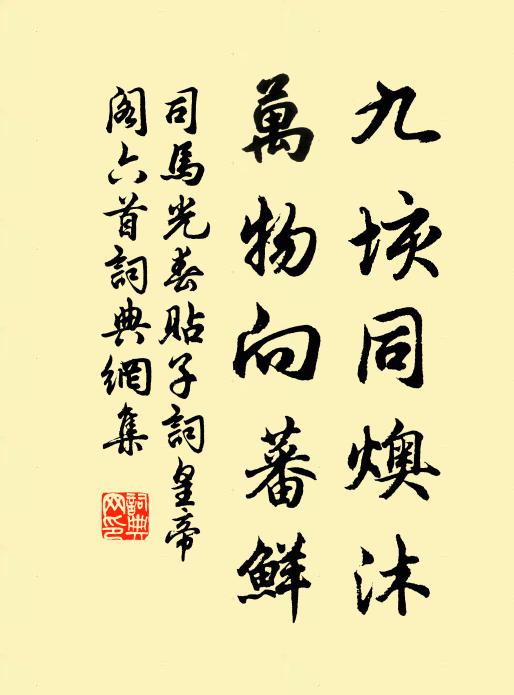 九垓同燠沐
萬物向蕃鮮
司馬光春貼子詞皇帝
閣六首詞典網集
詞典
网印